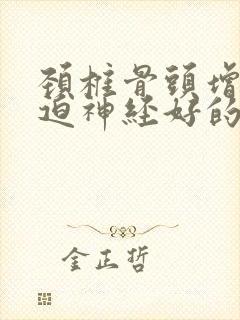 頚椎骨頭增
迫神経好的
金正哲